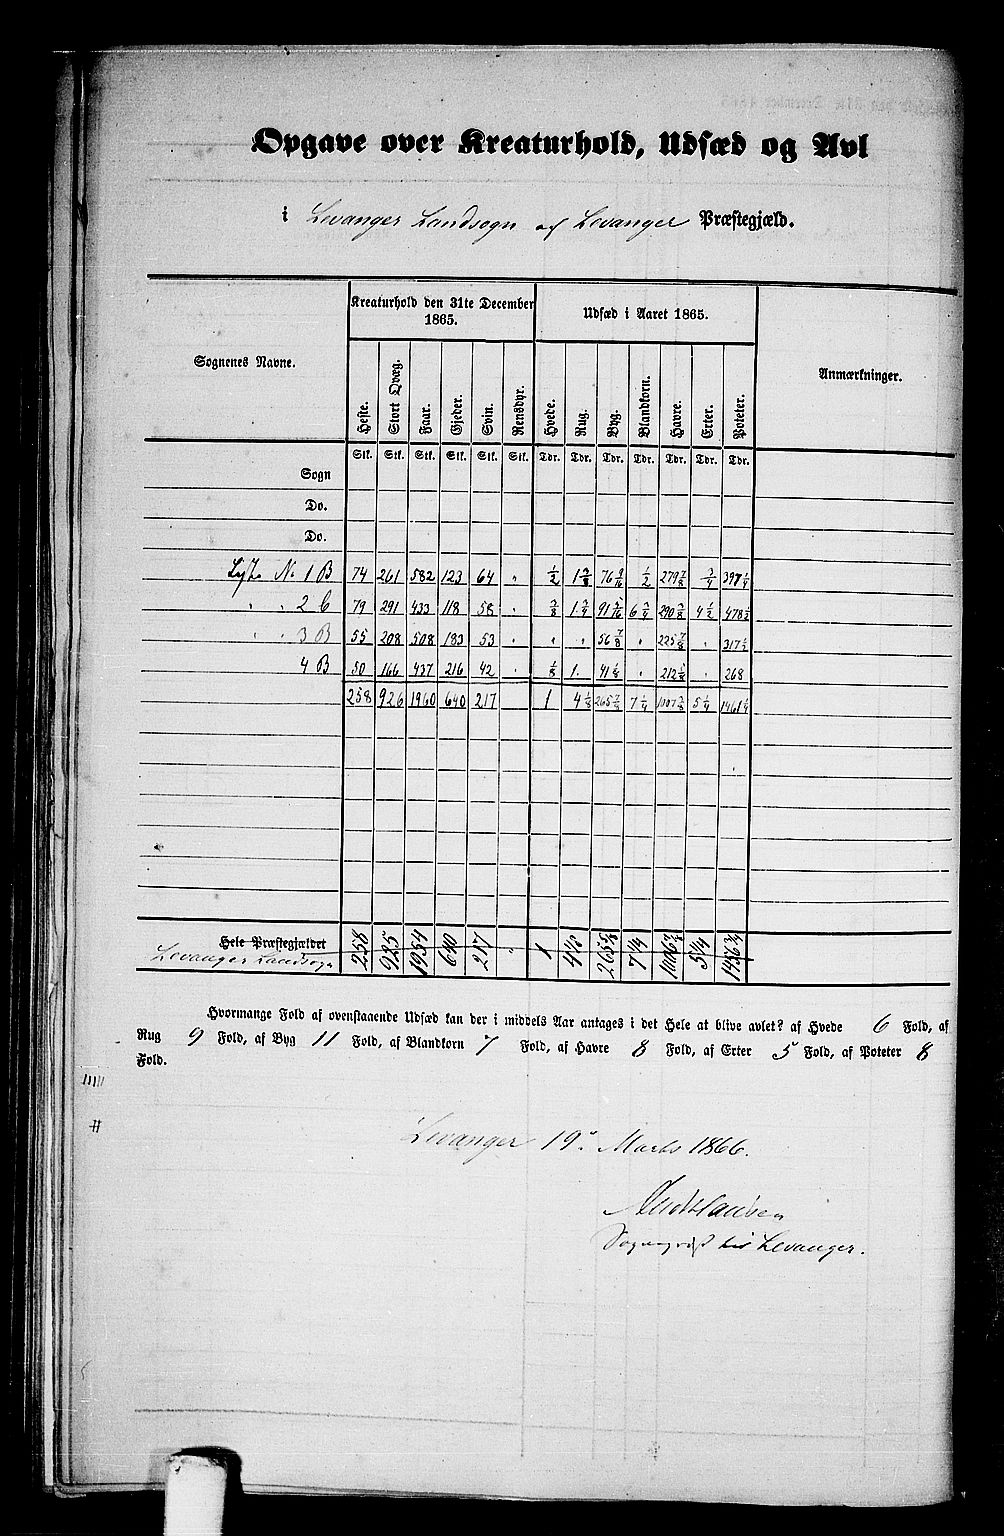 Opgave over Kreaturhold, Udsæd og Avl
i Levanger Landsogn af Levanger Præstegjæld.
Sognenes Navne.
Kreaturhold den 31te December 1865.
Udsæd i Aaret 1865.
Anmærkninger.
Heste. Stort Qvæg. Faar. Gjeder. Svin. Rensdyr. Hvede. Rug. Byg. Blandkorn. Havre. Erter. Poteter.
Stk. Stk. Stk. Stk. Stk. Stk. Tdr. Tdr. Tdr. Tdr. Tdr. Tdr. Tdr.
Sogn
Do.
Do.
No 1 B 74 261 582 123 64 " 1/2 1 3/8 76 9/16 1/2 279 7/8 3/4 397 1/4
" " 2 b 79 291 433 118 58 " 3/8 1 3/4 91 5/16 6 3/4 290 3/8 4 1/2 478 1/2
" " 3 B 55 208 508 183 53 " " " 56 7/8 " 225 7/8 " 317 1/2
4 B 50 166 437 216 42 " 1/8 1 " 212 " 268
258 926 1960 640 217 1 4 1/8 7 1/4 5 1/4 1461 1/4
Hele Præstegjældet
Levanger Landsogn 258 925 1954 640 217 " 1 4 1/2 7 1/4 5 1/4
Hvormange Fold af ovenstaaende Udsæd kan der i middels Aar antages i det Hele at blive avlet? af Hvede 6 Fold, af
Rug 9 Fold, af Byg 11 Fold, af Blandkorn 7 Fold, af Havre 8 Fold, af Erter 5 Fold, af Poteter 8
Fold.
Levanger 19 Marts 1866.
Levanger.